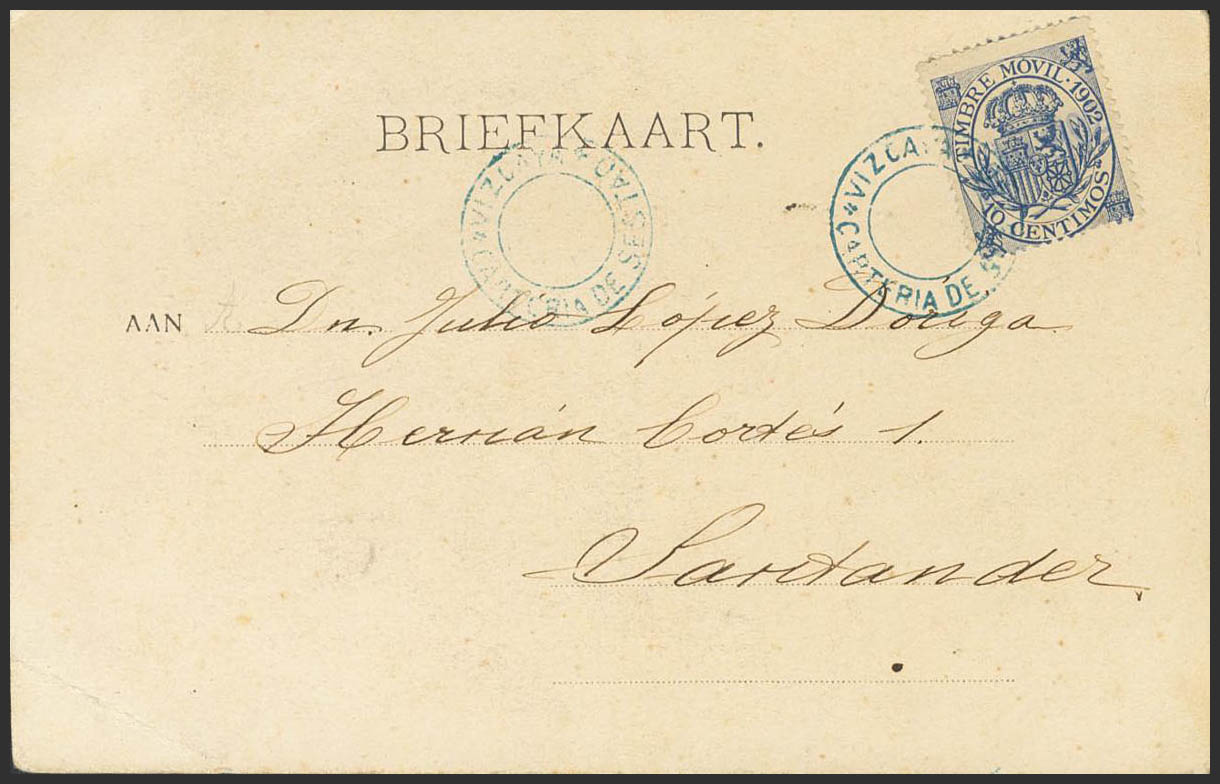 BRIEFKAART.
TIMBRE MÓVIL·1902
10 CENTIMOS
VIZCAYA CARTERIA DE SESTAO
VIZCAYA CARTERIA DE S
AAN Dn. Julio López Dóriga
Hernán Cortés 1.
Santander